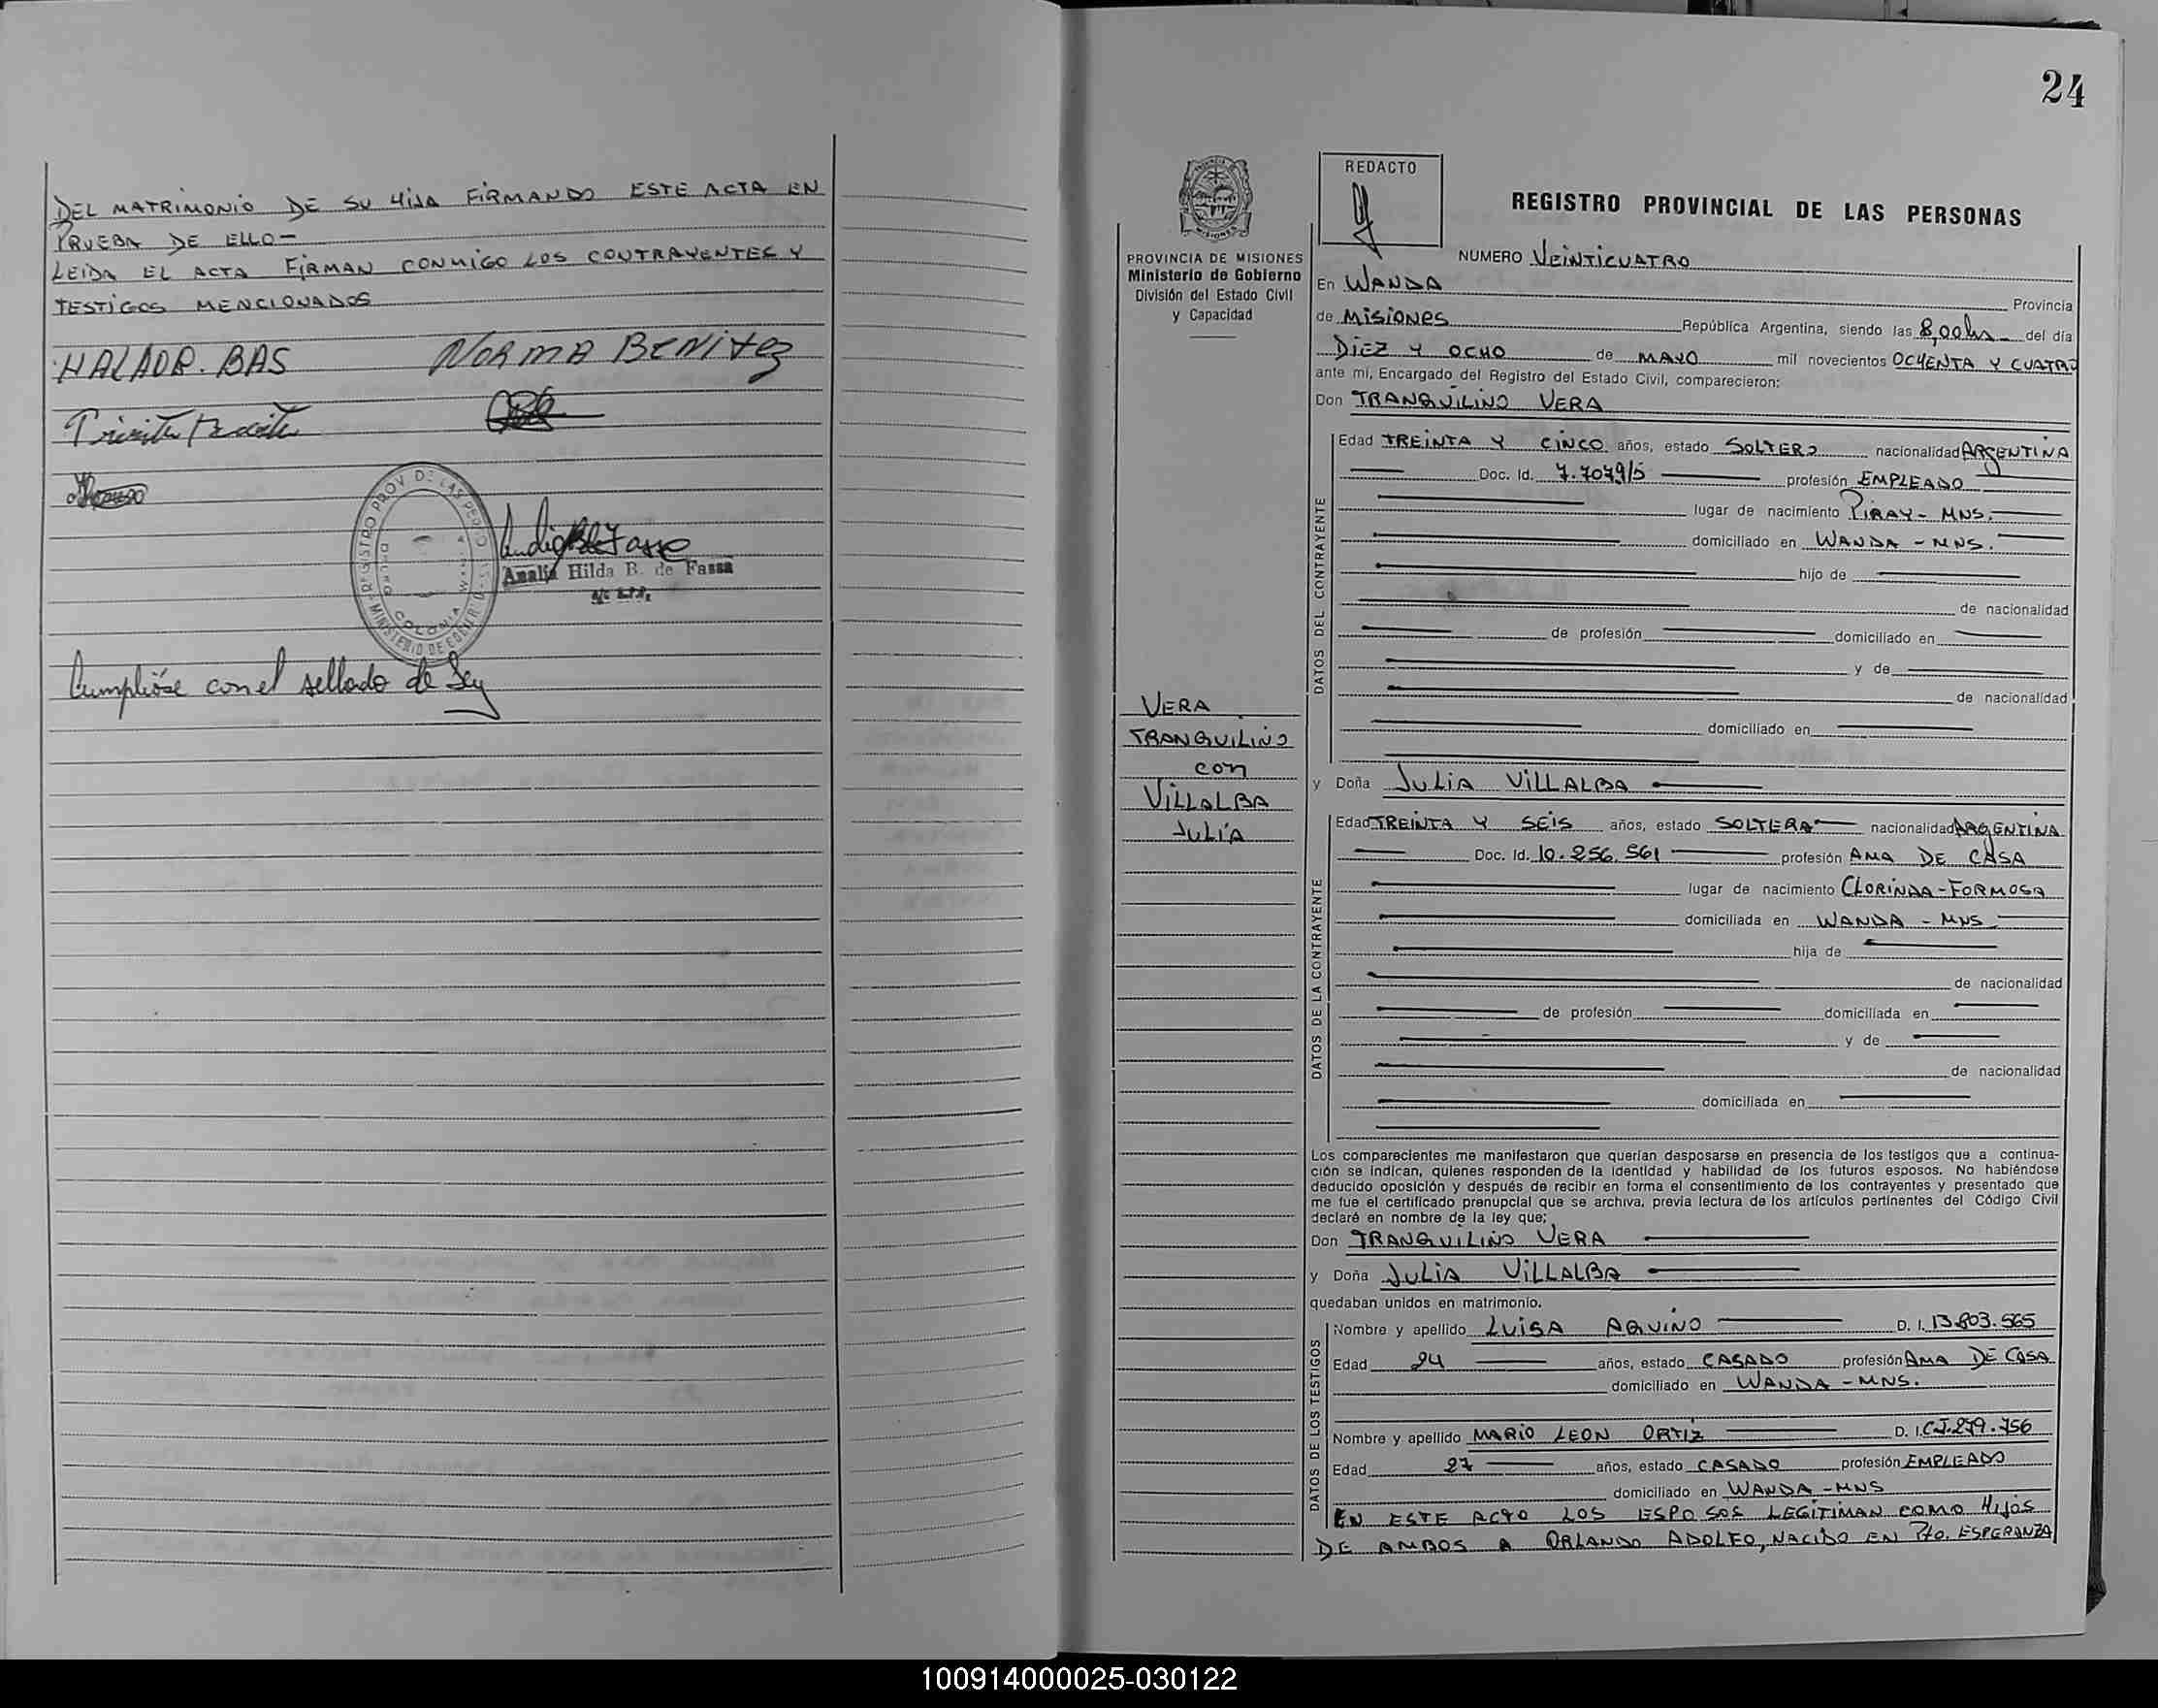 DEL MATRIMONIO DE SU HIJA FIRMANDO ESTE ACTA EN
PRUEBA DE ELLO-
LEIDA EL ACTA FIRMAN CONMIGO LOS CONTRAYENTES Y
TESTIGOS MENCIONADOS
HALADR. BAS NORMA BENITEZ
REGISTRO PROV DE LAS
MINISTERIO DE
COLONIA
Analia Hilda B. de Fassa
Cumplióse con el sellado de Ley
24
REDACTO
REGISTRO PROVINCIAL DE LAS PERSONAS
PROVINCIA DE MISIONES
Ministerio de Gobierno
División del Estado Civil
y Capacidad
VERA
TRANQUILINO
con
VILLALBA
JULIA
NUMERO VEINTICUATRO
En WANDA Provincia
de MISIONES República Argentina, siendo las 8,00hs del día
DIEZ Y OCHO de MAYO mil novecientos OCHENTA Y CUATRO
ante mí, Encargado del Registro del Estado Civil, comparecieron:
Don TRANQUILINO VERA
DATOS DEL CONTRAYENTE
Edad TREINTA Y CINCO años, estado SOLTERO nacionalidad ARGENTINA
Doc. Id. profesión EMPLEADO
lugar de nacimiento PIRAY- MNS.
domiciliado en WANDA - MNS.
hijo de
de nacionalidad
de profesión domiciliado en
y de
de nacionalidad
domiciliado en
y Doña JULIA VILLALBA
DATOS DE LA CONTRAYENTE
Edad TREINTA Y SEIS años, estado SOLTERA nacionalidad ARGENTINA
Doc. Id. 10.256.561 profesión AMA DE CASA
lugar de nacimiento CLORINDA-FORMOSA
domiciliada en WANDA - MNS
hija de
de nacionalidad
de profesión domiciliada en
y de
de nacionalidad
domiciliada en
Los comparecientes me manifestaron que querían desposarse en presencia de los testigos que a continua-
ción se indican, quienes responden de la identidad y habilidad de los futuros esposos. No habiéndose
deducido oposición y después de recibir en forma el consentimiento de los contrayentes y presentado que
me fue el certificado prenupcial que se archiva, previa lectura de los artículos pertinentes del Código Civil
declaré en nombre de la ley que;
Don TRANQUILINO VERA
y Doña JULIA VILLALBA
quedaban unidos en matrimonio.
DATOS DE LOS TESTIGOS
Nombre y apellido LUISA AQUINO D. I. 13.803.565
Edad 24 años, estado CASADO profesión AMA DE CASA
domiciliado en WANDA - MNS.
Nombre y apellido MARIO LEON ORTIZ D. I. C.I. 279.756
Edad 27 años, estado CASADO profesión EMPLEADO
domiciliado en WANDA - MNS
EN ESTE ACTO LOS ESPOSOS LEGITIMAN COMO HIJOS
DE AMBOS A ORLANDO ADOLFO, NACIDO EN Pto. ESPERANZA
100914000025-030122